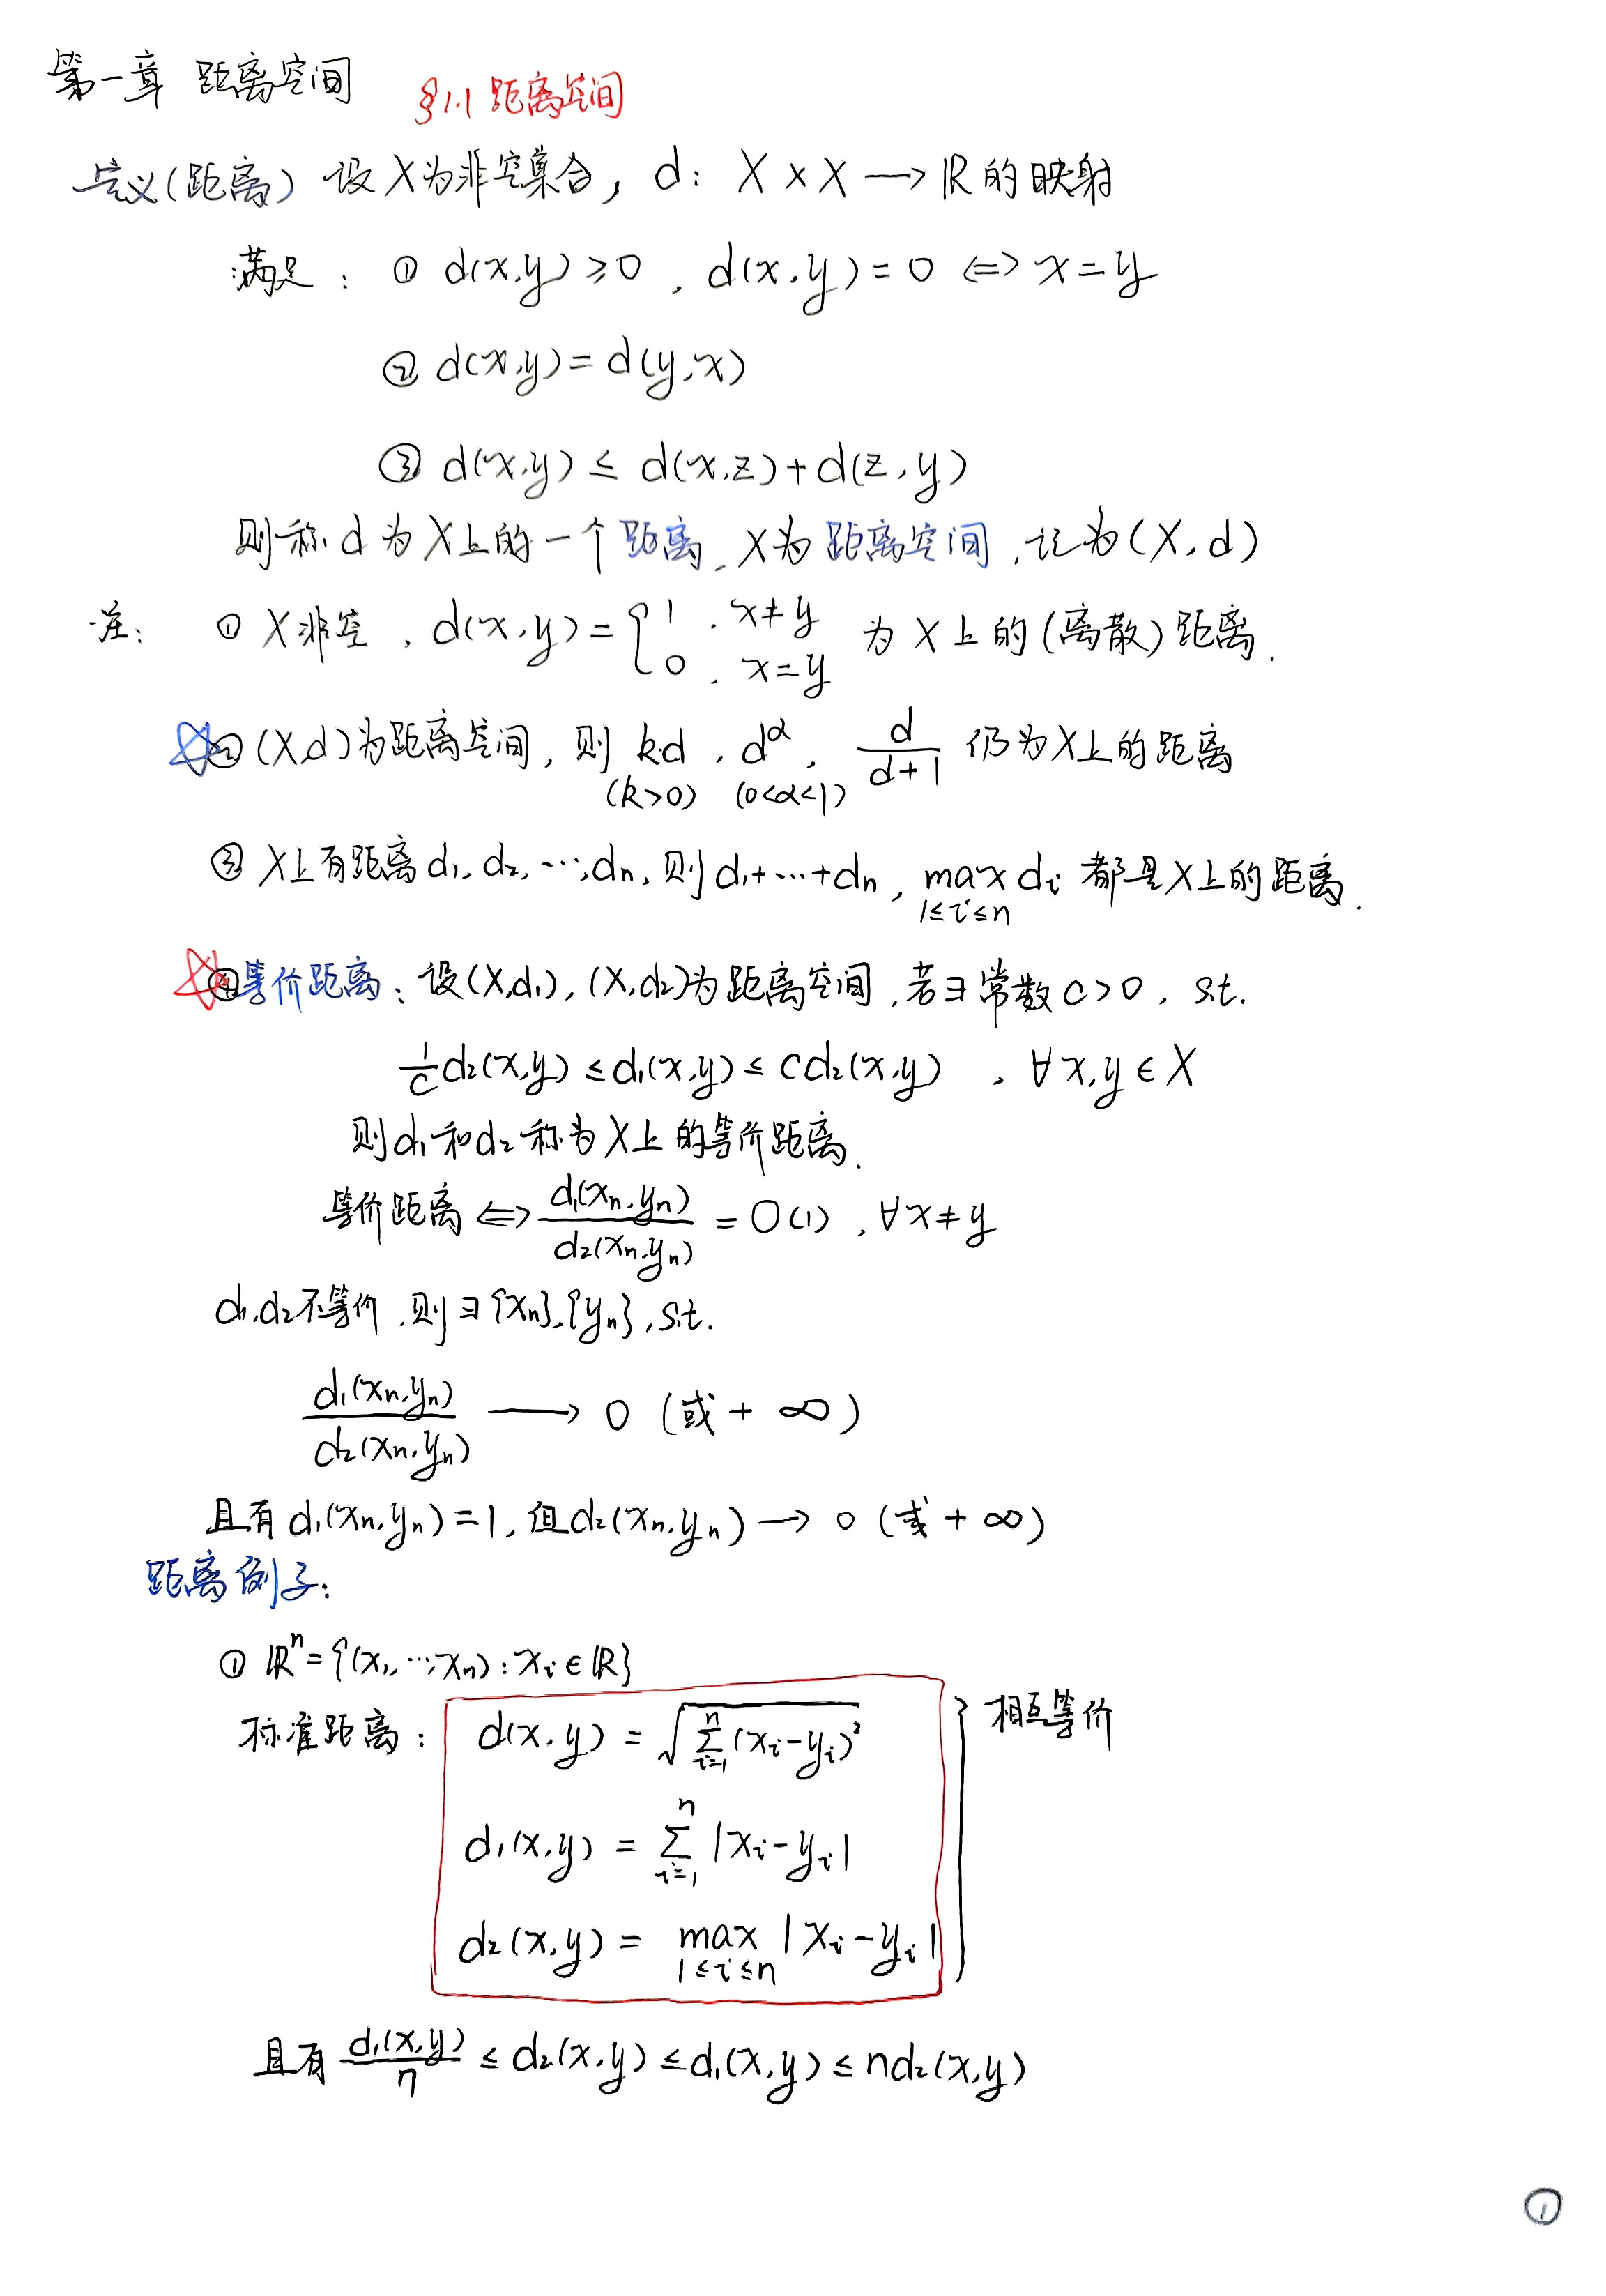 第一章 距离空间 §1.1 距离空间
定义(距离) 设X为非空集合, d: X×X→ℝ的映射
满足: ① d(x,y)≥0, d(x,y)=0 ⇔ x=y
② d(x,y)=d(y,x)
③ d(x,y)≤d(x,z)+d(z,y)
则称d为X上的一个距离, X为距离空间, 记为(X,d)
注: ① X非空, d(x,y)={1, x≠y; 0, x=y 为X上的(离散)距离.
② (X,d)为距离空间, 则 k·d, d^α, d/(d+1) 仍为X上的距离
(k>0) (0<α<1)
③ X上有距离d₁,d₂,…,dₙ, 则d₁+…+dₙ, max dᵢ 都是X上的距离.
1≤i≤n
④ 等价距离: 设(X,d₁), (X,d₂)为距离空间, 若∃常数c>0, s.t.
1/c d₂(x,y)≤d₁(x,y)≤cd₂(x,y), ∀x,y∈X
则d₁和d₂称为X上的等价距离.
等价距离 ⇔ d₁(xₙ,yₙ)/d₂(xₙ,yₙ) = O(1), ∀x≠y
d₁,d₂不等价, 则∃{xₙ},{yₙ}, s.t.
d₁(xₙ,yₙ)/d₂(xₙ,yₙ) → 0 (或+∞)
且有d₁(xₙ,yₙ)=1, 但d₂(xₙ,yₙ)→0 (或+∞)
距离例子:
① ℝⁿ={(x₁,…,xₙ): xᵢ∈ℝ}
标准距离: d(x,y)=√(∑ⁿᵢ₌₁(xᵢ-yᵢ)²) } 相互等价
d₁(x,y)=∑ⁿᵢ₌₁|xᵢ-yᵢ|
d₂(x,y)= max |xᵢ-yᵢ|
1≤i≤n
且有 d₁(x,y)/n ≤d₂(x,y)≤d₁(x,y)≤nd₂(x,y)
①